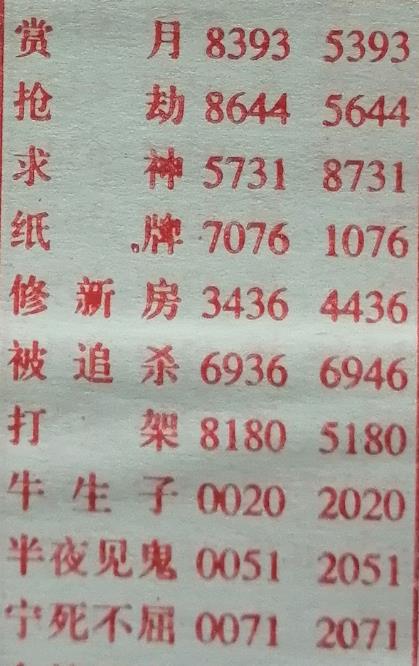 赏月 8393 5393
抢劫 8644 5644
求神 5731 8731
纸牌 7076 1076
修新房 3436 4436
被追杀 6936 6946
打架 8180 5180
牛生子 0020 2020
半夜见鬼 0051 2051
宁死不屈 0071 2071